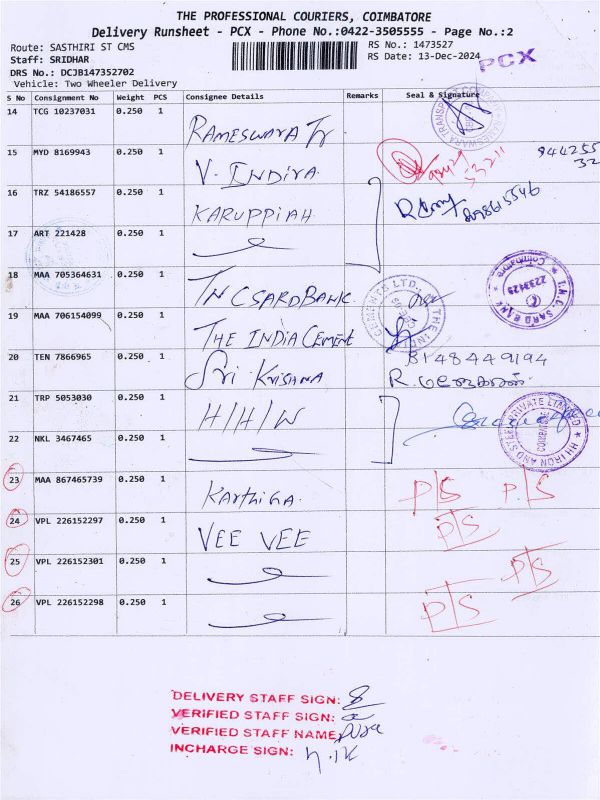 THE PROFESSIONAL COURIERS, COIMBATORE
Delivery Runsheet - PCX - Phone No.:0422-3505555 - Page No.:2
Route: SASTHIRI ST CMS
RS No.: 1473527
Staff: SRIDHAR
RS Date: 13-Dec-2024
PCX
DRS No.: DCJB147352702
Vehicle: Two Wheeler Delivery
S No Consignment No Weight PCS Consignee Details Remarks Seal & Signature
14 TCG 10237031 0.250 1 RAMESWARA Tr
15 MYD 8169943 0.250 1 V. INDIRA 53211 944255 32
16 TRZ 54186557 0.250 1 KARUPPIAH
17 ART 221428 0.250 1
18 MAA 705364631 0.250 1 TNCSARDBANK T.N.C. SARD BANK Coimbatore 2233425
19 MAA 706154099 0.250 1 THE INDIA CEMENT
20 TEN 7866965 0.250 1 Sri Krishna 8148449194
21 TRP 5053030 0.250 1 H/H/W
22 NKL 3467465 0.250 1 HI IRON AND STEEL PRIVATE LIMITED COIMBATORE
23 MAA 867465739 0.250 1 Karthiga P/S P/S
24 VPL 226152297 0.250 1 VEE VEE P/S
25 VPL 226152301 0.250 1 P/S
26 VPL 226152298 0.250 1 P/S
DELIVERY STAFF SIGN:
VERIFIED STAFF SIGN:
VERIFIED STAFF NAME:
INCHARGE SIGN: